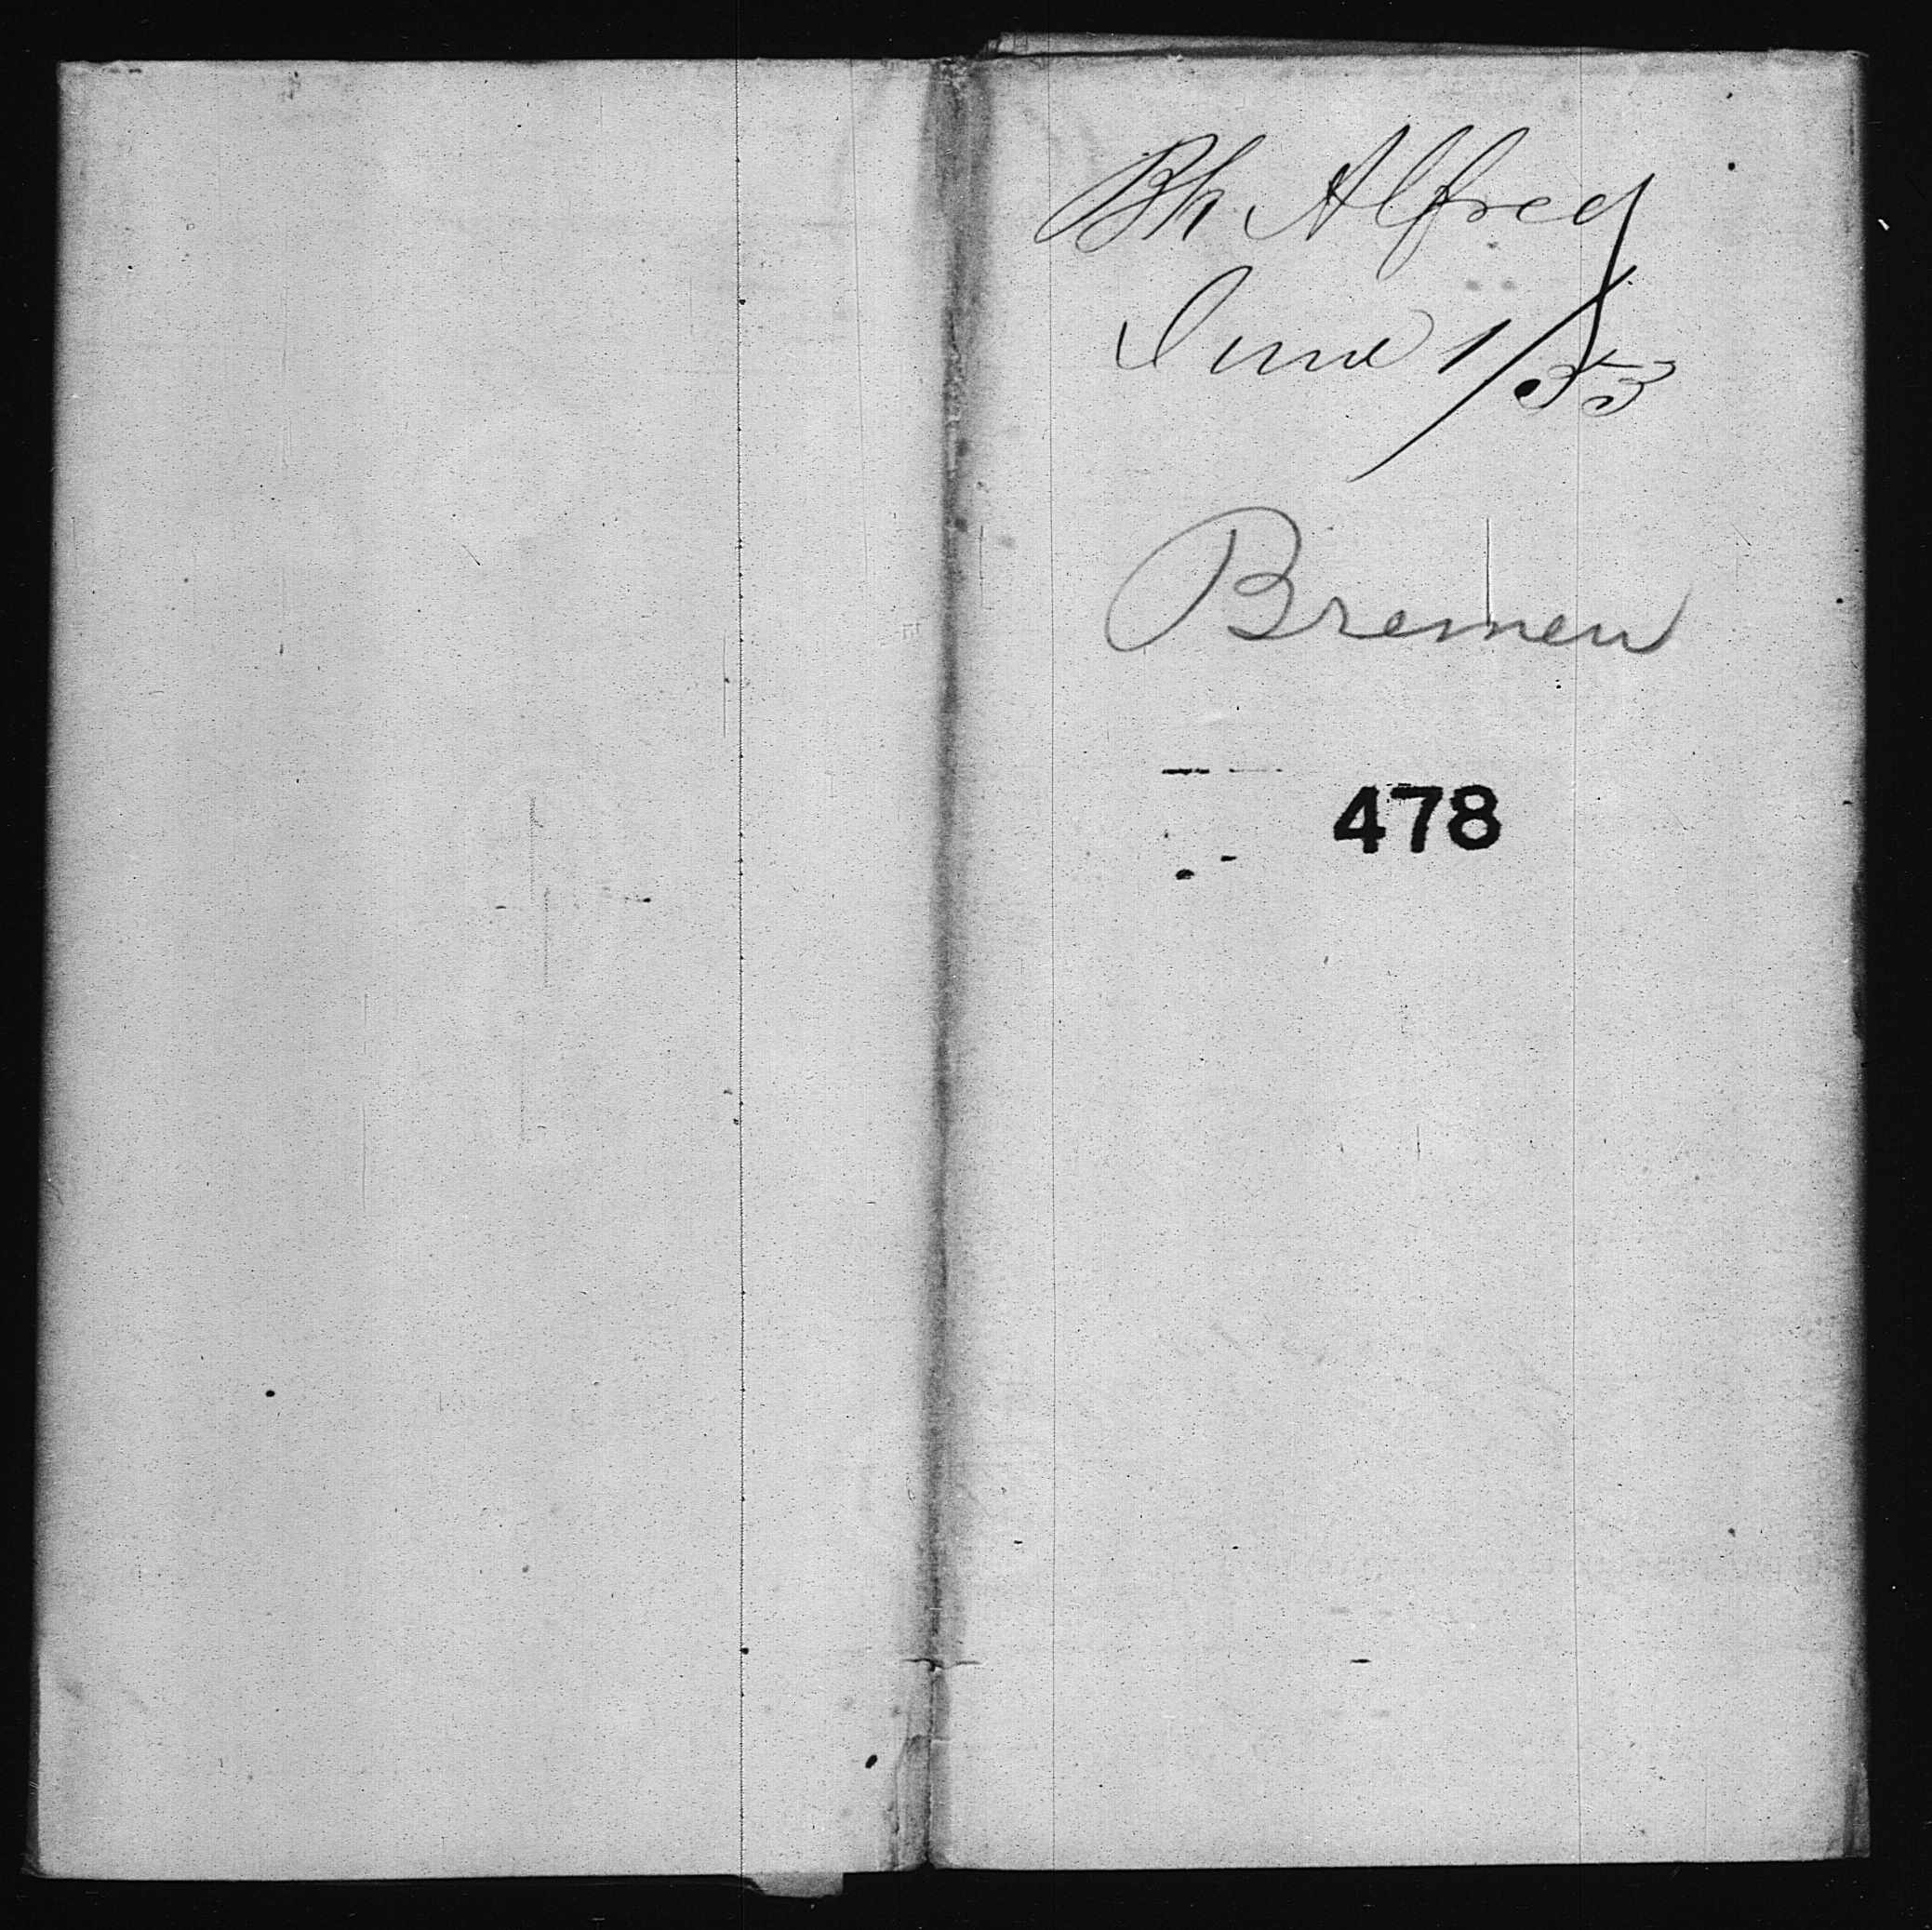 Bk Alfred
June 1/53
Bremen
478